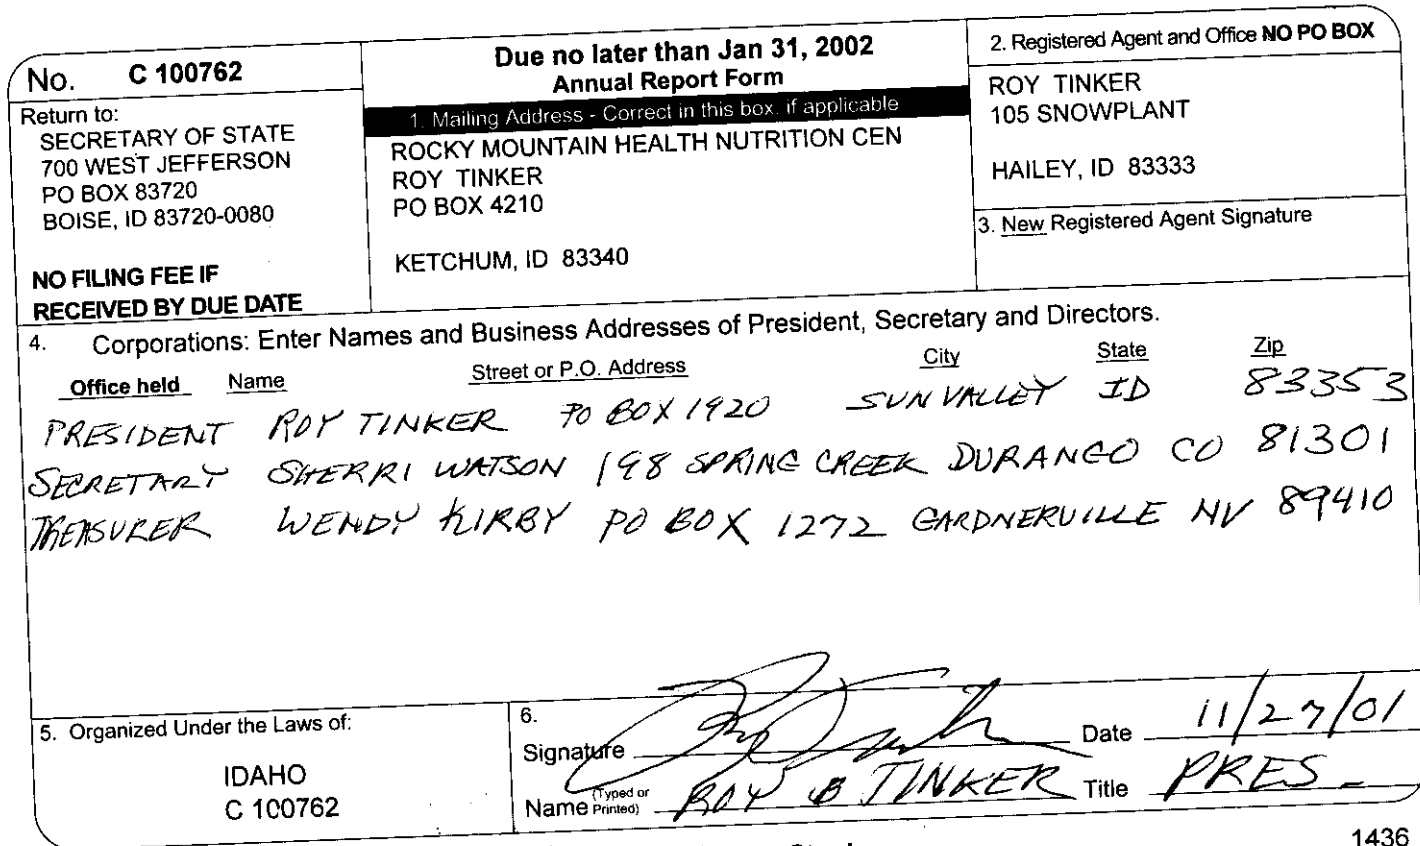 No. C 100762
Return to:
SECRETARY OF STATE
700 WEST JEFFERSON
PO BOX 83720
BOISE, ID 83720-0080
NO FILING FEE IF
RECEIVED BY DUE DATE
Due no later than Jan 31, 2002
Annual Report Form
1. Mailing Address - Correct in this box, if applicable
ROCKY MOUNTAIN HEALTH NUTRITION CEN
ROY TINKER
PO BOX 4210
KETCHUM, ID 83340
2. Registered Agent and Office NO PO BOX
ROY TINKER
105 SNOWPLANT
HAILEY, ID 83333
3. New Registered Agent Signature
4. Corporations: Enter Names and Business Addresses of President, Secretary and Directors.
Office held Name Street or P.O. Address City State Zip
PRESIDENT ROY TINKER PO BOX 1920 SUN VALLEY ID 83353
SECRETARY SHERRI WATSON 198 SPRING CREEK DURANGO CO 81301
TREASURER WENDY KIRBY PO BOX 1272 GARDNERVILLE NV 89410
5. Organized Under the Laws of:
IDAHO
C 100762
6.
Signature Date 11/27/01
Name (Typed or Printed) ROY B TINKER Title PRES
1436